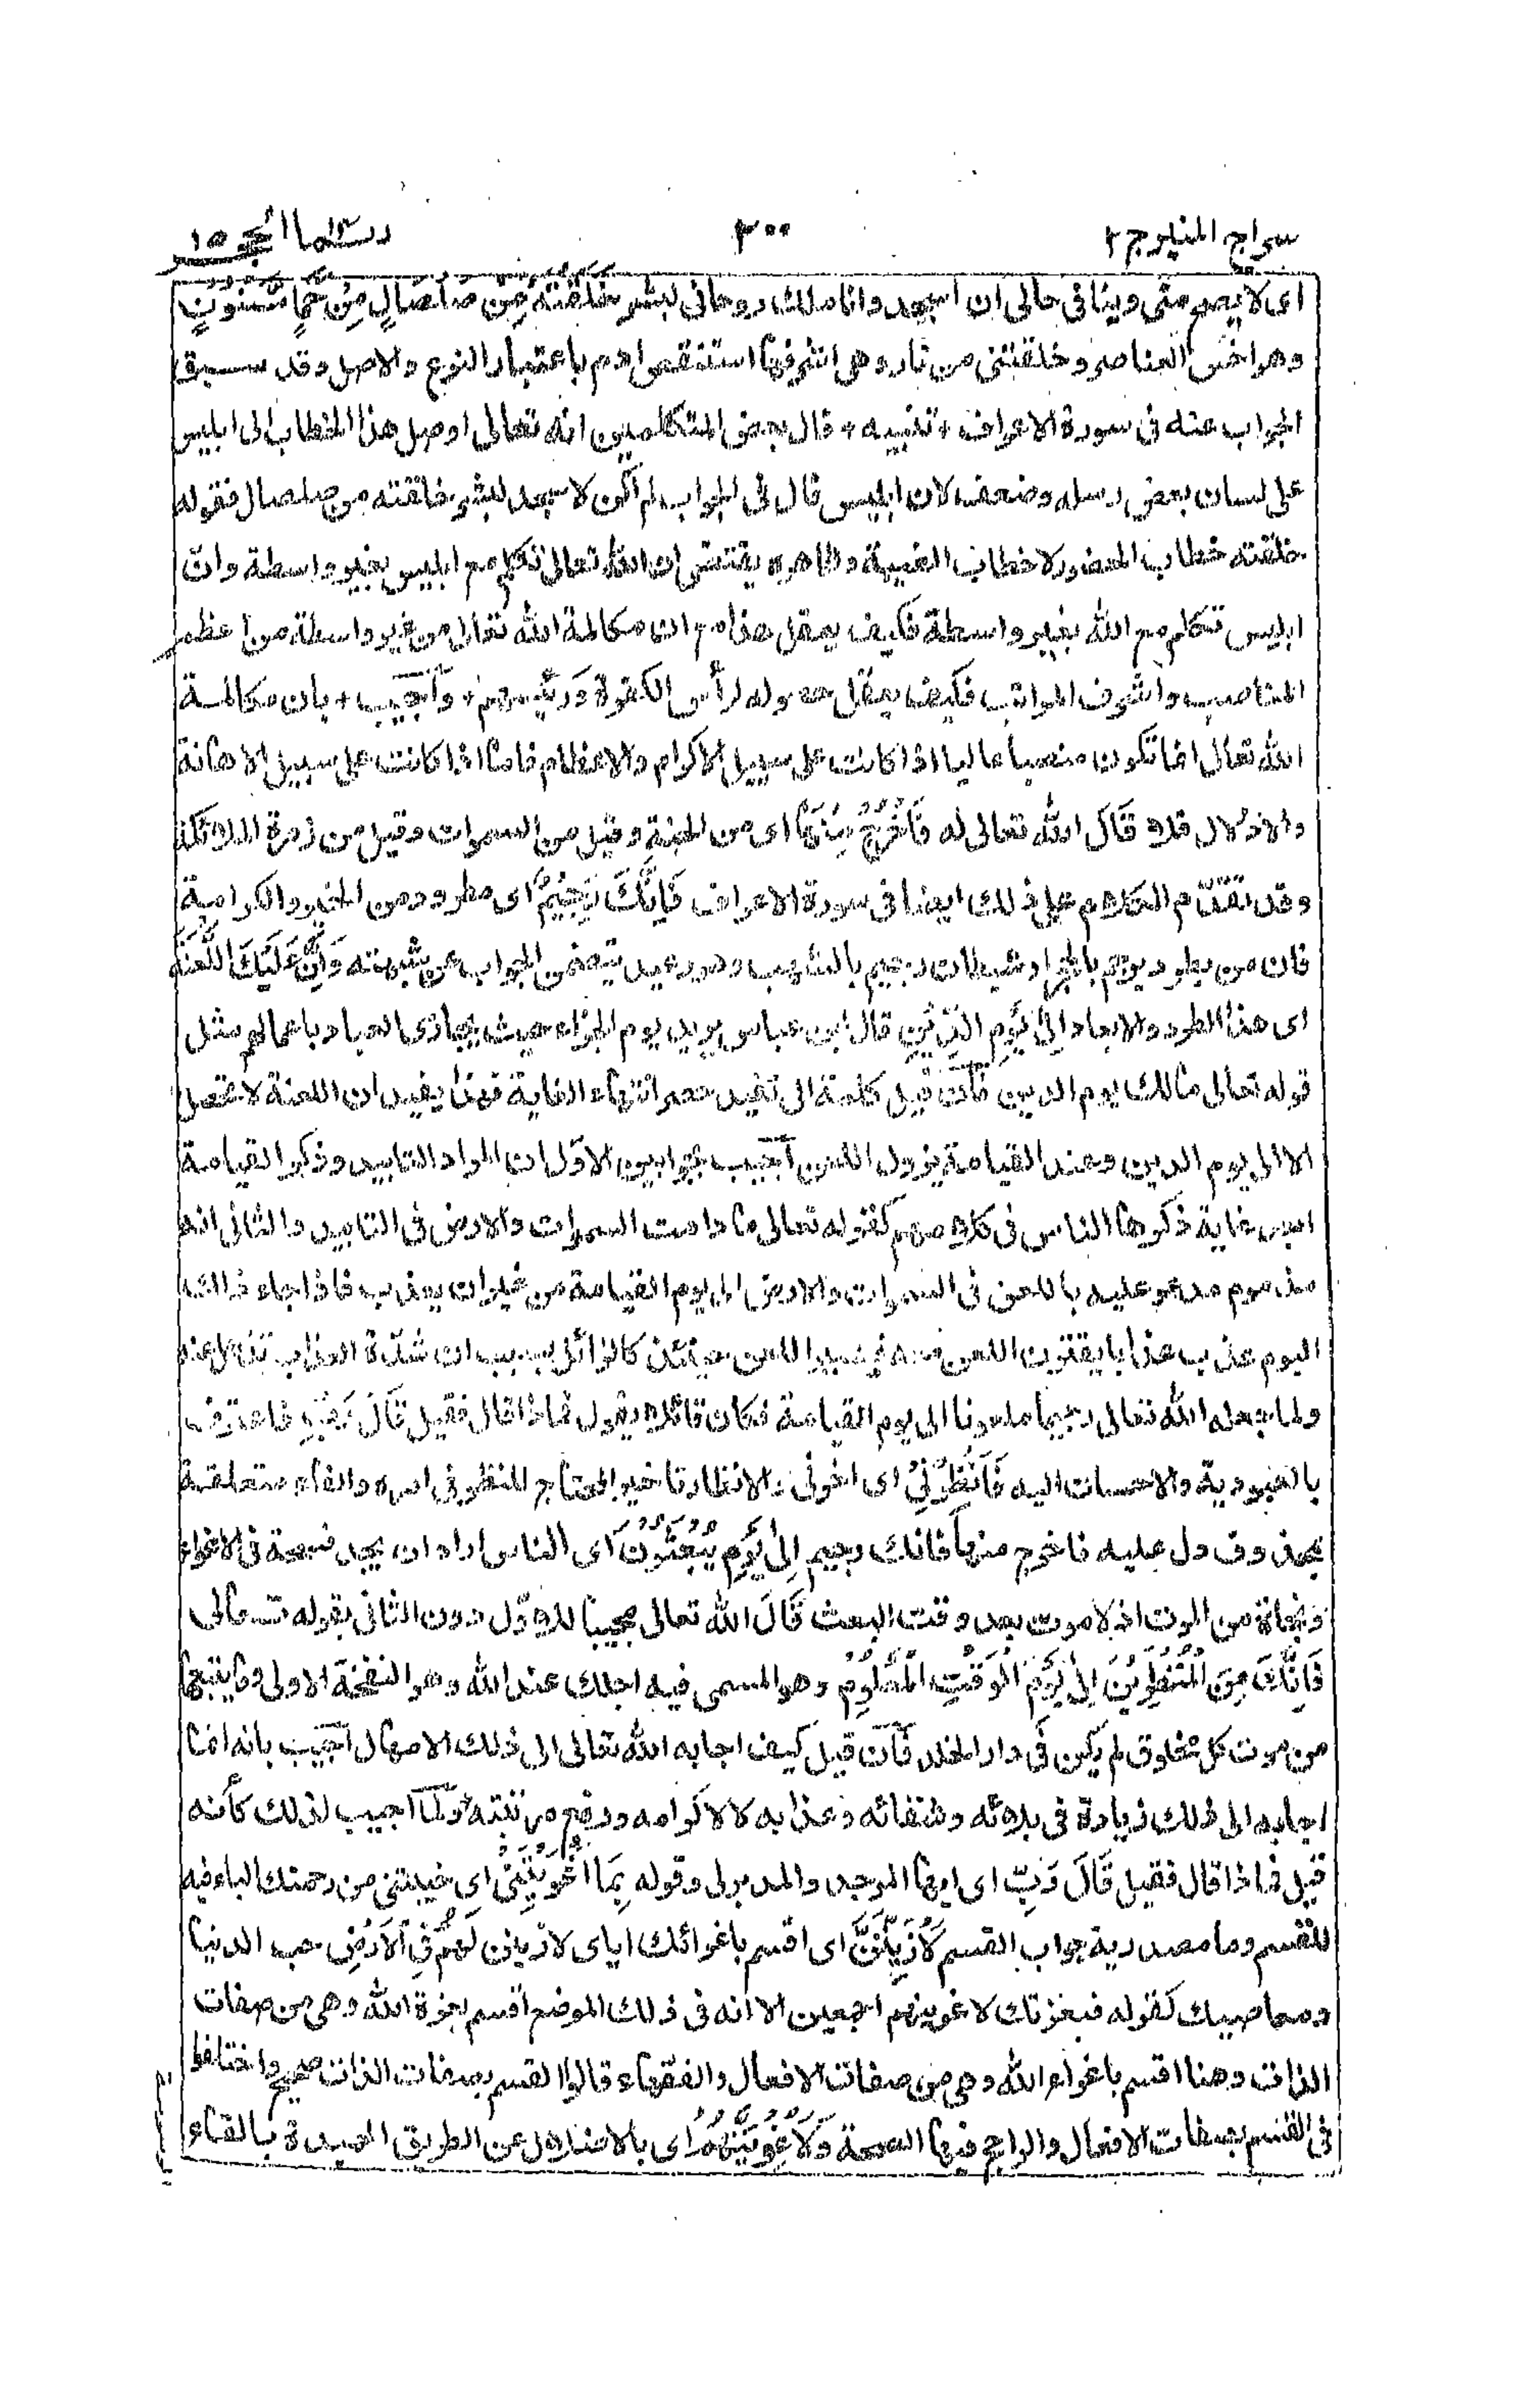 سراج المنير ج ٢
٣٠٠
ربما ١٤ الحجر ١٥
اى لا يصح منى وينافى حالى ان اسجد وانا ملك روحانى لبشر خَلَقْتَهٗ مِنْ صَلْصَالٍ مِّنْ حَمَإٍ مَّسْنُوْنٍ
وهو اخس العناصر وخلقتنى من نار وهى اشرفها استنقص ادم باعتبار النوع والاصل وقد سبق
الجواب عنه فى سورة الاعراف + تنبيه + قال بعض المتكلمين انه تعالى اوصل هذا الخطاب الى ابليس
على لسان بعض رسله وضعف لان ابليس قال فى الجواب لم اكن لاسجد لبشر خلقته من صلصال فقوله
خلقته خطاب الحضور لا خطاب الغيبة وظاهره يقتضى ان الله تعالى تكلم مع ابليس بغير واسطة وان
ابليس تكلم مع الله بغير واسطة فكيف يعقل هذا مع ان مكالمة الله تعالى من غير واسطة من اعظم
المناصب واشرف المراتب فكيف يعقل حصوله لرأس الكفرة ورئيسهم + واجيب + بان مكالمة
الله تعالى انما تكون منصبا عاليا اذا كانت على سبيل الاكرام والاعظام فاما اذا كانت على سبيل الاهانة
والاذلال فلا قَالَ الله تعالى له فَاخْرُجْ مِنْهَا اى من الجنة وقيل من السموات وقيل من زمرة الملائكة
وقد تقدّم الكلام على ذلك ايضا فى سورة الاعراف فَاِنَّكَ رَجِيْمٌ اى مطرود من الخير والكرامة
فان من يطرد يرجم بالحجر او شيطان رجيم بالشهب وهو وعيد يتضمن الجواب عن شبهته وَاِنَّ عَلَيْكَ اللَّعْنَةَ
اى هذا الطرد والابعاد اِلٰى يَوْمِ الدِّيْنِ قال ابن عباس يريد يوم الجزاء حيث يجازى العباد باعمالهم مثل
قوله تعالى مالك يوم الدين فان قيل كلمة الى تفيد حصر انتهاء الغاية فهذا يفيد ان اللعنة لا تحصل
الا الى يوم الدين وعند القيامة يزول اللعن اجيب بجوابين الاوّل ان المراد التابيد وذكر القيامة
ابعد غاية ذكرها الناس فى كلامهم كقوله تعالى ما دامت السموات والارض فى التابيد والثانى انه
مذموم مدعو عليه باللعن فى السموات والارض الى يوم القيامة من غير ان يعذب فاذا جاء ذلك
اليوم عذب عذابا يقترن اللعن معه فيصير اللعن حينئذ كالزائل بسبب ان شدّة العذاب تذهل عنه
ولما جعله الله تعالى رجيما ملعونا الى يوم القيامة فكان قائلا يقول فماذا قال فقيل قَالَ رَبِّ فاعترف
بالعبودية والاحسان اليه فَاَنْظِرْنِىْ اى اخرنى والانظار تاخير المحتاج للنظر فى امره والفاء متعلقة
بمحذوف دل عليه فاخرج منها فانك رجيم اِلٰى يَوْمِ يُبْعَثُوْنَ اى الناس اراد ان يجد فسحة فى الاغواء
ونجاة من الموت اذ لا موت بعد وقت البعث قَالَ الله تعالى مجيبا للاوّل دون الثانى بقوله تعالى
فَاِنَّكَ مِنَ الْمُنْظَرِيْنَ اِلٰى يَوْمِ الْوَقْتِ الْمَعْلُوْمِ وهو المسمى فيه اجلك عند الله وهو النفخة الاولى وما يتبعها
من موت كل مخلوق لم يكن فى دار الخلد فان قيل كيف اجابه الله تعالى الى ذلك الامهال اجيب بانه انما
اجابه الى ذلك زيادة فى بلائه وشقائه وعذابه لا لاكرامه ورفع مرتبته ولما اجيب لذلك كأنه
قيل فماذا قال فقيل قَالَ رَبِّ اى ايها الموجد والمدبر لى وقوله بِمَا اَغْوَيْتَنِىْ اى خيبتنى من رحمتك الباء فيه
للقسم وما مصدرية جواب القسم لَاُزَيِّنَنَّ اى اقسم باغوائك اياى لازينن لَهُمْ فِى الْاَرْضِ حب الدنيا
ومعاصيك كقوله فبعزتك لاغوينهم اجمعين الا انه فى ذلك الموضع اقسم بعزة الله وهى من صفات
الذات وهنا اقسم باغواء الله وهى من صفات الافعال والفقهاء قالوا القسم بصفات الذات صحيح واختلفوا
فى القسم بصفات الافعال والراجح فيها الصحة وَلَاُغْوِيَنَّهُمْ اى بالاضلال عن الطريق الحميدة بالقاء